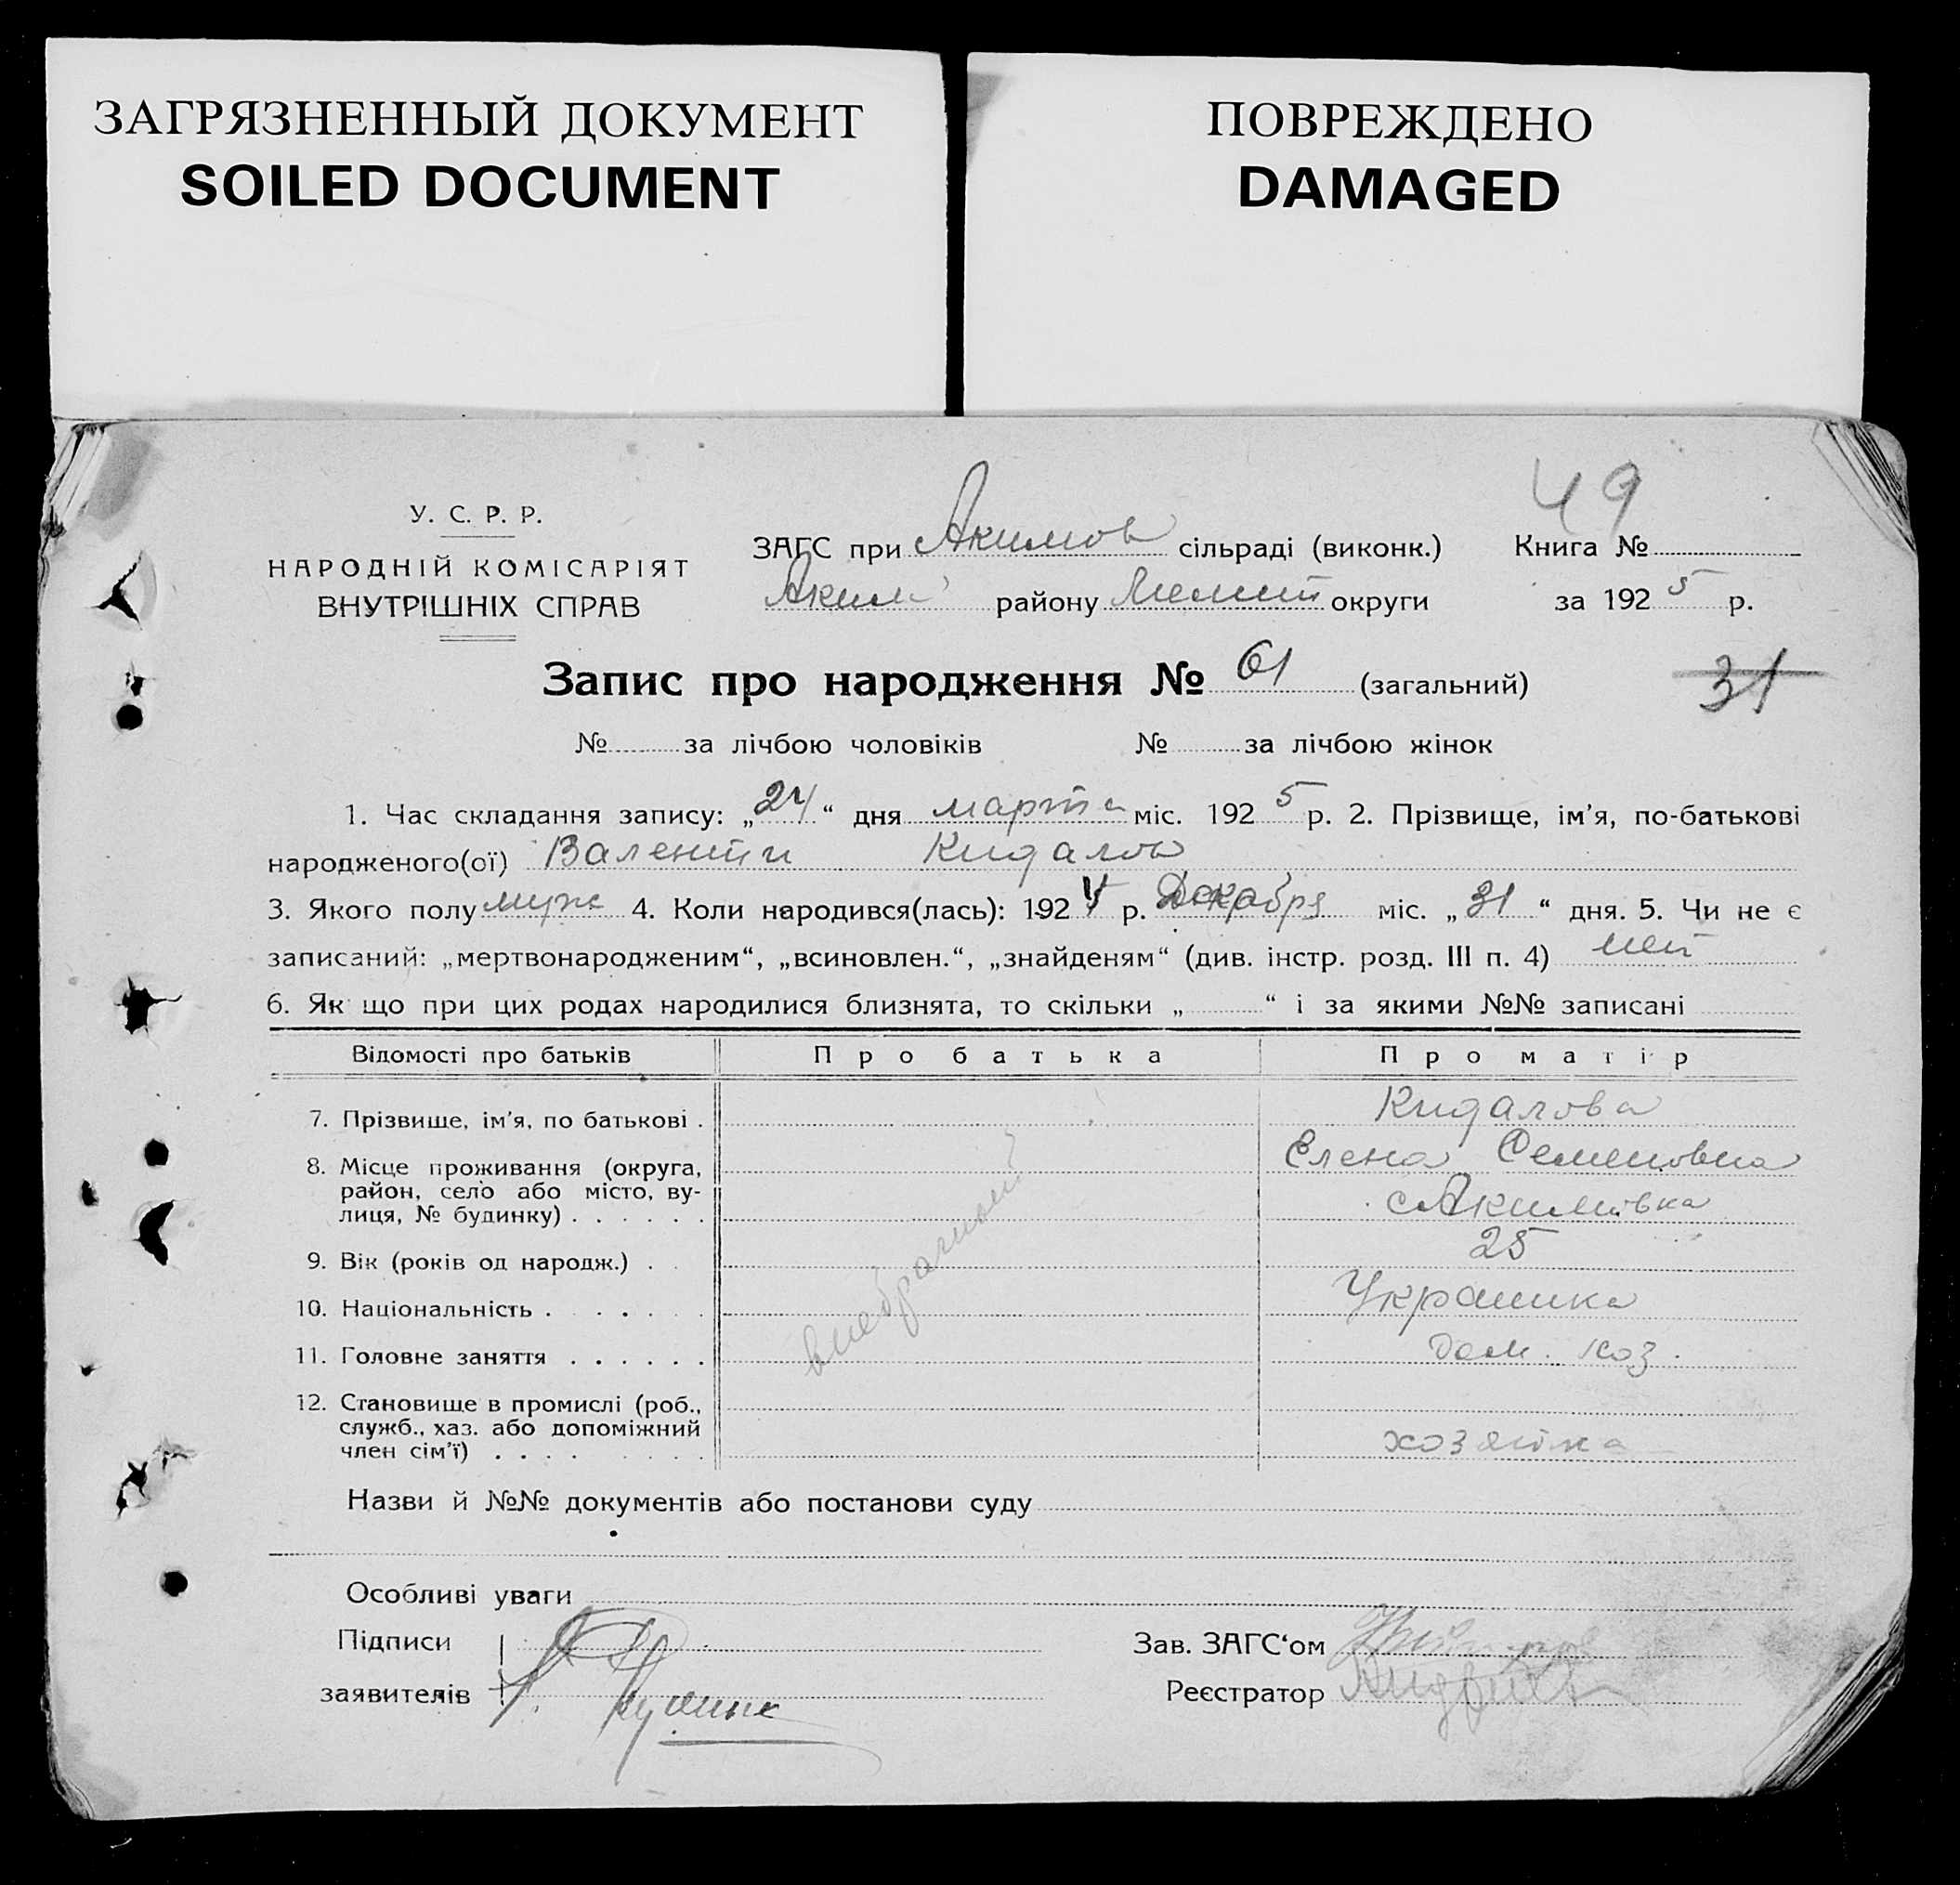 ЗАГРЯЗНЕННЫЙ ДОКУМЕНТ
SOILED DOCUMENT
ПОВРЕЖДЕНО
DAMAGED
49
У. С. Р. Р.
НАРОДНІЙ КОМІСАРІЯТ
ВНУТРІШНІХ СПРАВ
ЗАГС при Акимов сільраді (виконк.) Книга №
Аким району Мелит округи за 1925 р.
Запис про народження № 61 (загальний)
31
№ за лічбою чоловіків № за лічбою жінок
1. Час складання запису: „24“ дня марта міс. 1925 р. 2. Прізвище, ім’я, по-батькові
народженого(ої) Валентин Кидалов
3. Якого полу муж 4. Коли народився(лась): 1924 р. Декабря міс. „31“ дня. 5. Чи не є
записаний: „мертвонародженим“, „всиновлен.“, „знайденям“ (див. інстр. розд. III п. 4) нет
6. Як що при цих родах народилися близнята, то скільки „ “ і за якими №№ записані
Відомості про батьків Про батька Про матір
7. Прізвище, ім’я, по батькові . Кидалова
Елена Семеновна
8. Місце проживання (округа,
район, село або місто, ву-
лиця, № будинку) . . . . . . с Акимовка
9. Вік (років од народж.) . . 25
10. Національність . . . . . Украинка
11. Головне заняття . . . . . . дом. хоз.
внебрачный
12. Становище в промислі (роб.,
служб., хаз. або допоміжний
член сім’ї) . . . . . . . . хозяйка
Назви й №№ документів або постанови суду
Особливі уваги
Підписи
заявителів
Зав. ЗАГС‘ом
Реєстратор